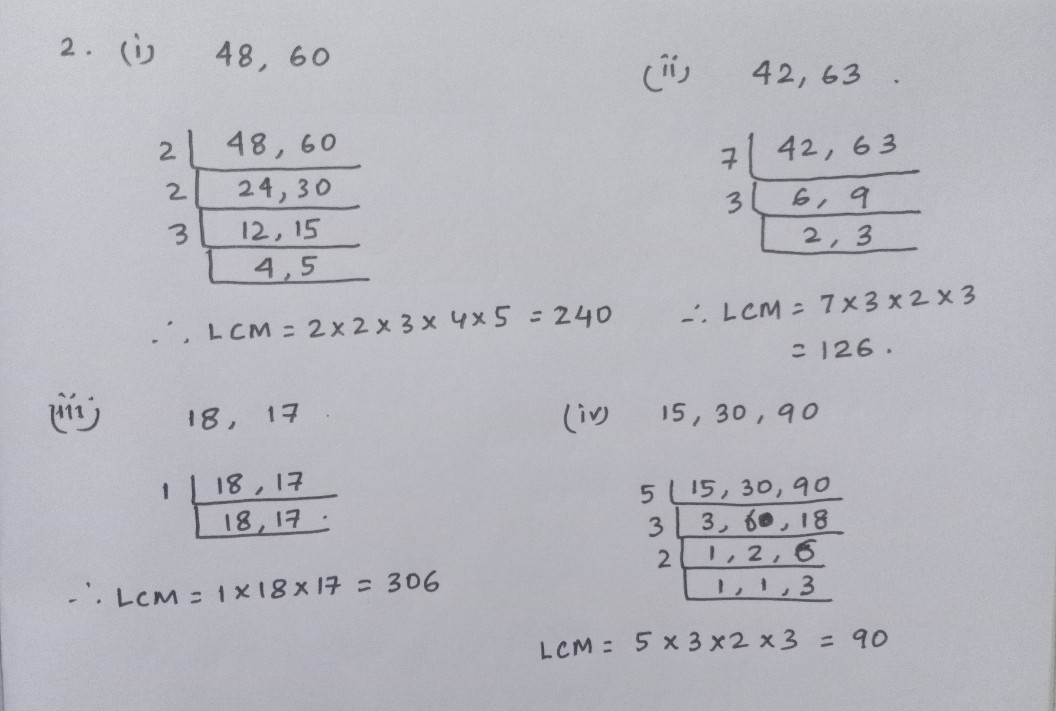 2. (i) 48, 60
2 | 48, 60
2 | 24, 30
3 | 12, 15
4, 5
∴ LCM = 2 x 2 x 3 x 4 x 5 = 240
(ii) 42, 63.
7 | 42, 63
3 | 6, 9
2, 3
∴ LCM = 7 x 3 x 2 x 3
= 126.
(iii) 18, 17.
1 | 18, 17
18, 17.
∴ LCM = 1 x 18 x 17 = 306
(iv) 15, 30, 90
5 | 15, 30, 90
3 | 3, 6, 18
2 | 1, 2, 6
1, 1, 3
LCM = 5 x 3 x 2 x 3 = 90